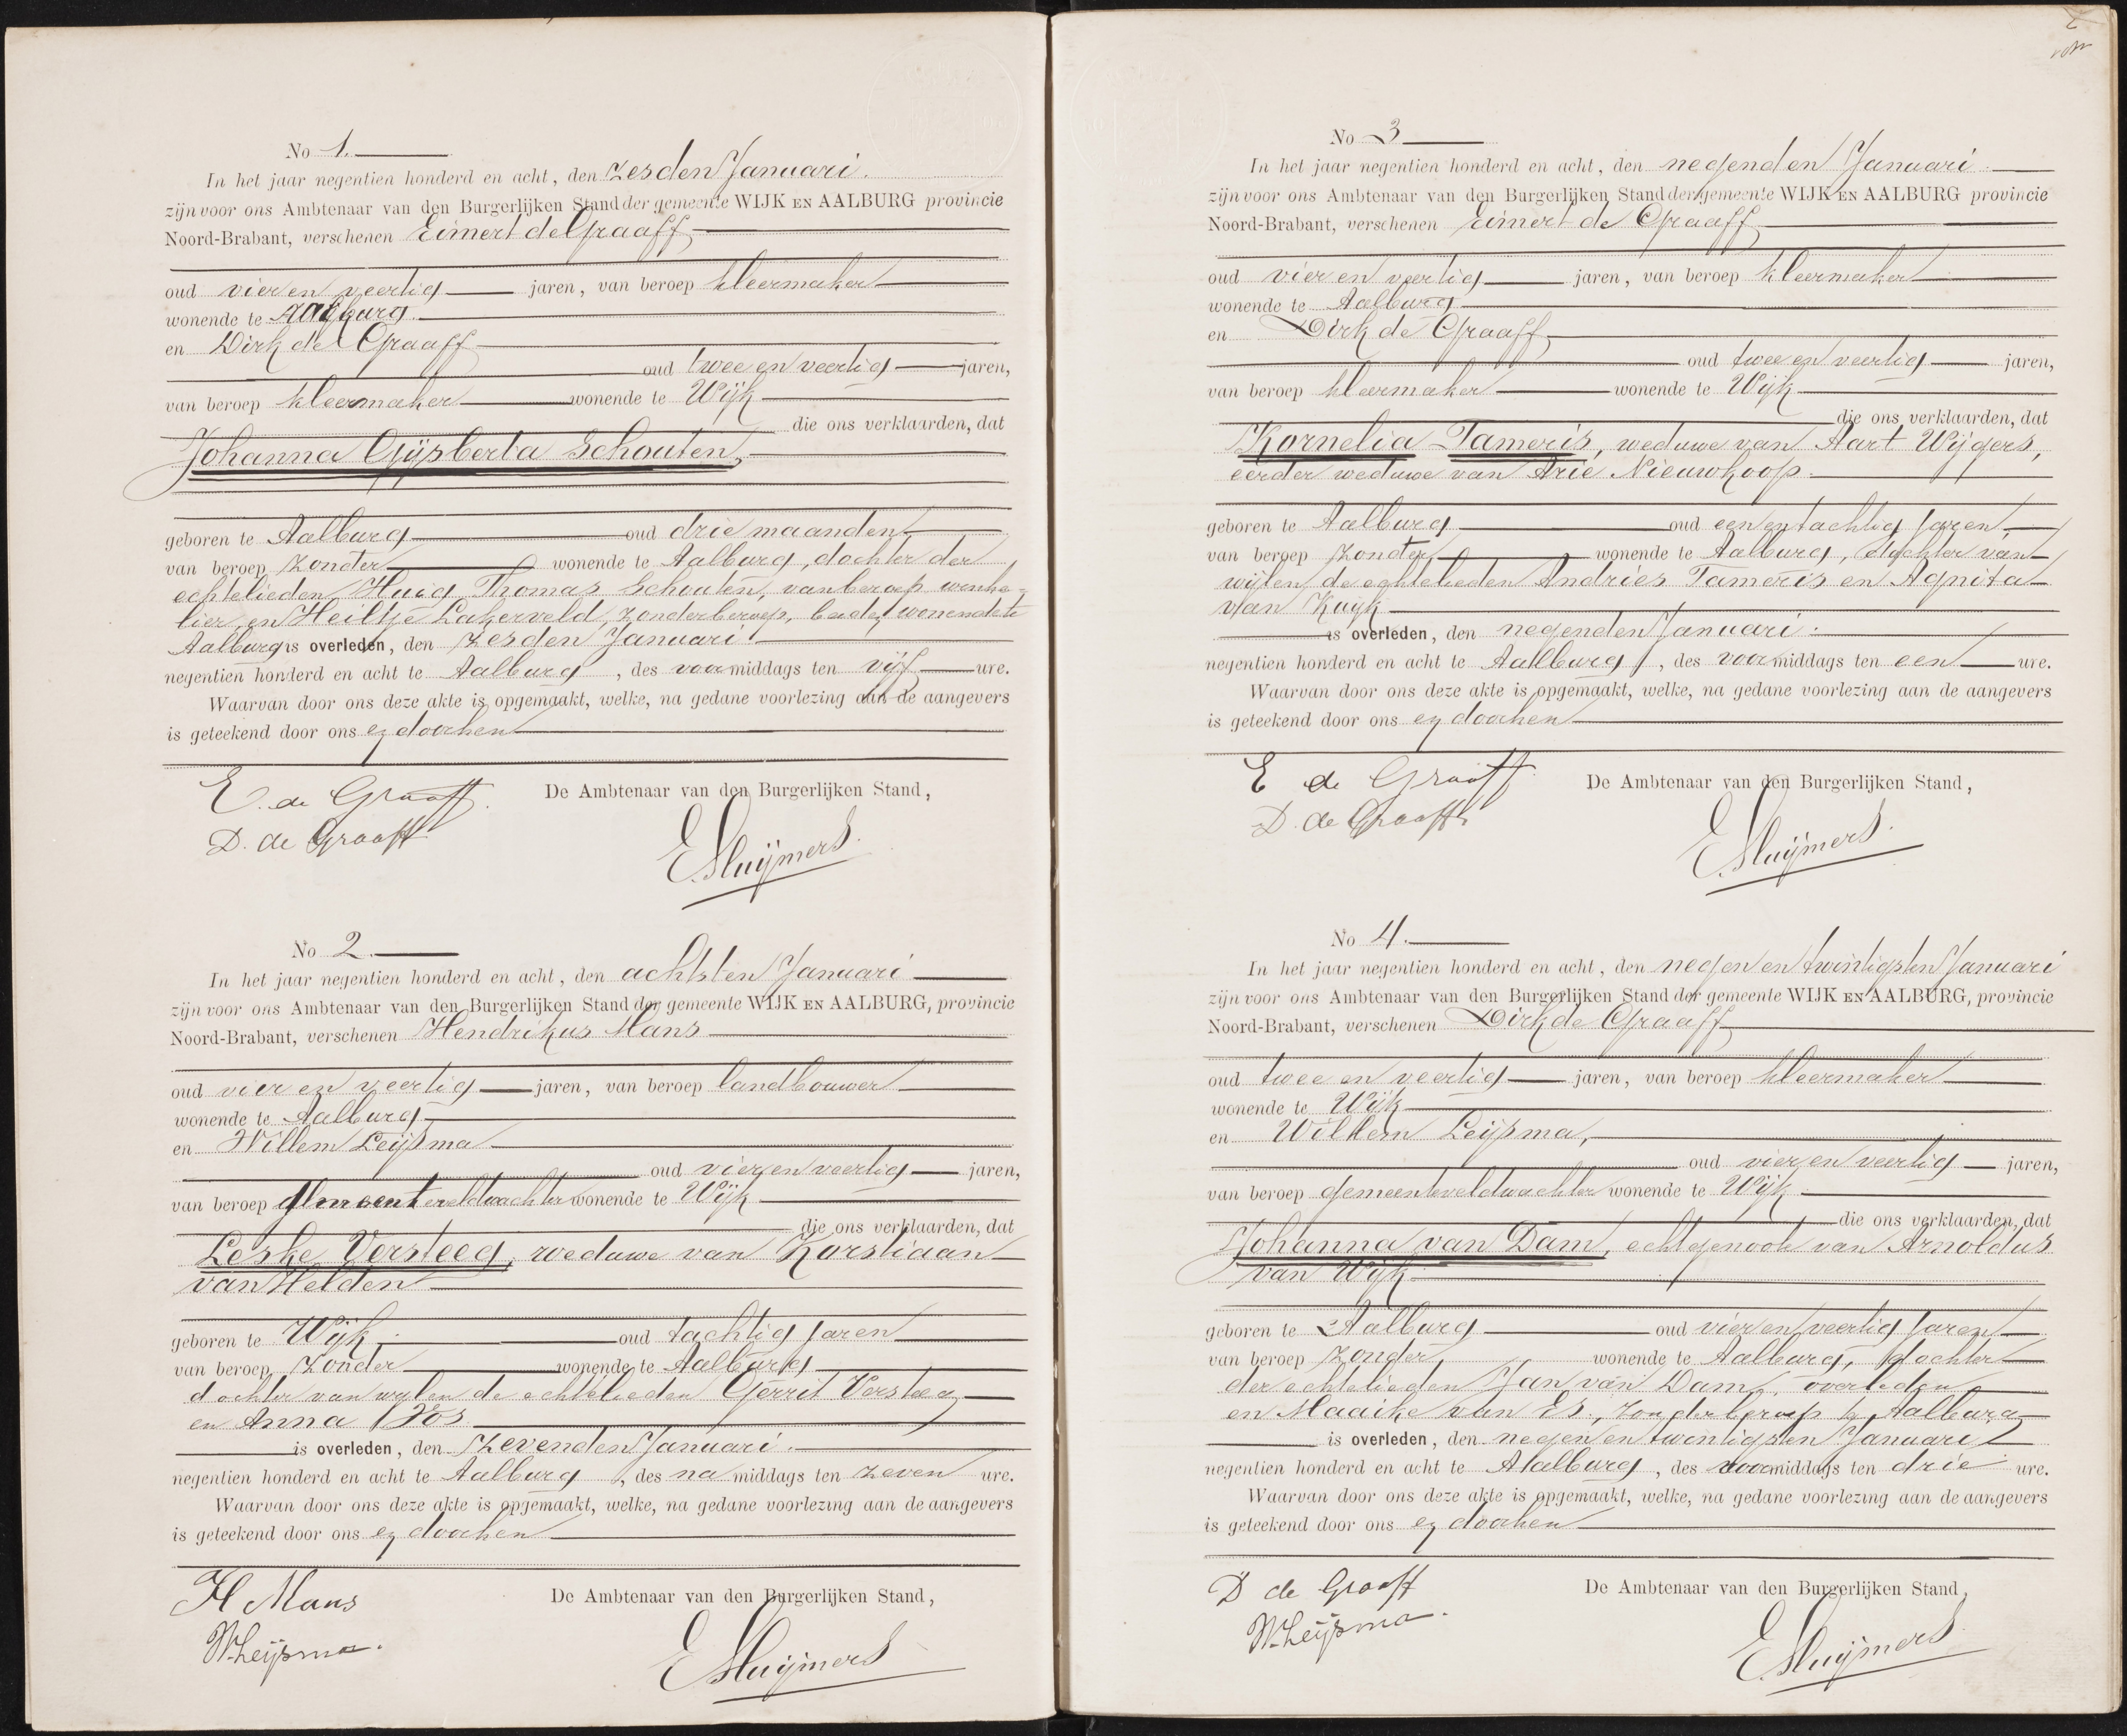 No 1.
In het jaar negentien honderd en acht, den zesden Januari.
zijn voor ons Ambtenaar van den Burgerlijken Stand der gemeente WIJK EN AALBURG provincie
Noord-Brabant, verschenen Eimert de Graaff
oud vier en veertig jaren, van beroep kleermaker
wonende te Aalburg
en Dirk de Graaff
oud twee en veertig jaren,
van beroep kleermaker wonende te Wijk
die ons verklaarden, dat
Johanna Gijsberta Schouten,
geboren te Aalburg oud drie maanden
van beroep zonder wonende te Aalburg, dochter der
echtelieden Huig Thomas Schouten, van beroep winke-
lier en Heiltje Lakerveld, zonder beroep, beide wonende te
Aalburg is overleden, den zesden Januari
negentien honderd en acht te Aalburg, des voormiddags ten vijf ure.
Waarvan door ons deze akte is opgemaakt, welke, na gedane voorlezing aan de aangevers
is geteekend door ons en door hen
E. de Graaff.
De Ambtenaar van den Burgerlijken Stand,
D. de Graaff
E Sluijmers.
No 2.
In het jaar negentien honderd en acht, den achtsten Januari
zijn voor ons Ambtenaar van den Burgerlijken Stand der gemeente WIJK EN AALBURG, provincie
Noord-Brabant, verschenen Hendrikus Mans
oud vier en veertig jaren, van beroep landbouwer
wonende te Aalburg
en Willem Leijsma
oud vier en veertig jaren,
van beroep gemeenteveldwachter wonende te Wijk
die ons verklaarden, dat
Leske Versteeg, weduwe van Korstiaan
van Helden
geboren te Wijk oud tachtig jaren
van beroep zonder wonende te Aalburg
dochter van wylen de echtelieden Gerrit Versteeg
en Anna Vos
is overleden, den zevenden Januari.
negentien honderd en acht te Aalburg, des namiddags ten zeven ure.
Waarvan door ons deze akte is opgemaakt, welke, na gedane voorlezing aan de aangevers
is geteekend door ons en door hen
H Mans
De Ambtenaar van den Burgerlijken Stand,
W. Leijsma.
E Sluijmers
2
No 3
In het jaar negentien honderd en acht, den negenden Januari.
zijn voor ons Ambtenaar van den Burgerlijken Stand der gemeente WIJK EN AALBURG provincie
Noord-Brabant, verschenen Eimert de Graaff
oud vier en veertig jaren, van beroep kleermaker
wonende te Aalburg
en Dirk de Graaff
oud twee en veertig jaren,
van beroep kleermaker wonende te Wijk
die ons verklaarden, dat
Kornelia Tameris, weduwe van Aart Wijgers,
eerder weduwe van Arie Nieuwkoop.
geboren te Aalburg oud een en tachtig jaren
van beroep zonder wonende te Aalburg, dochter van
wijlen de echtelieden Andries Tameris en Agnita
van Kuijk
is overleden, den negenden Januari.
negentien honderd en acht te Aalburg, des voormiddags ten een ure.
Waarvan door ons deze akte is opgemaakt, welke, na gedane voorlezing aan de aangevers
is geteekend door ons en door hen
E de Graaff.
De Ambtenaar van den Burgerlijken Stand,
D. de Graaff
E Sluijmers.
No 4.
In het jaar negentien honderd en acht, den negen en twintigsten Januari
zijn voor ons Ambtenaar van den Burgerlijken Stand der gemeente WIJK EN AALBURG, provincie
Noord-Brabant, verschenen Dirk de Graaff
oud twee en veertig jaren, van beroep kleermaker
wonende te Wijk
en Willem Leijsma,
oud vier en veertig jaren,
van beroep gemeenteveldwachter wonende te Wijk
die ons verklaarden, dat
Johanna van Dam, echtgenoote van Arnoldus
van Wijk
geboren te Aalburg oud vier en veertig jaren
van beroep zonder wonende te Aalburg, dochter
der echtelieden Jan van Dam, overleden
en Maaike van Es, zonder beroep te Aalburg
is overleden, den negen en twintigsten Januari
negentien honderd en acht te Aalburg, des voormiddags ten drie ure.
Waarvan door ons deze akte is opgemaakt, welke, na gedane voorlezing aan de aangevers
is geteekend door ons en door hen
D de Graaff
De Ambtenaar van den Burgerlijken Stand,
W. Leijsma.
E Sluijmers.